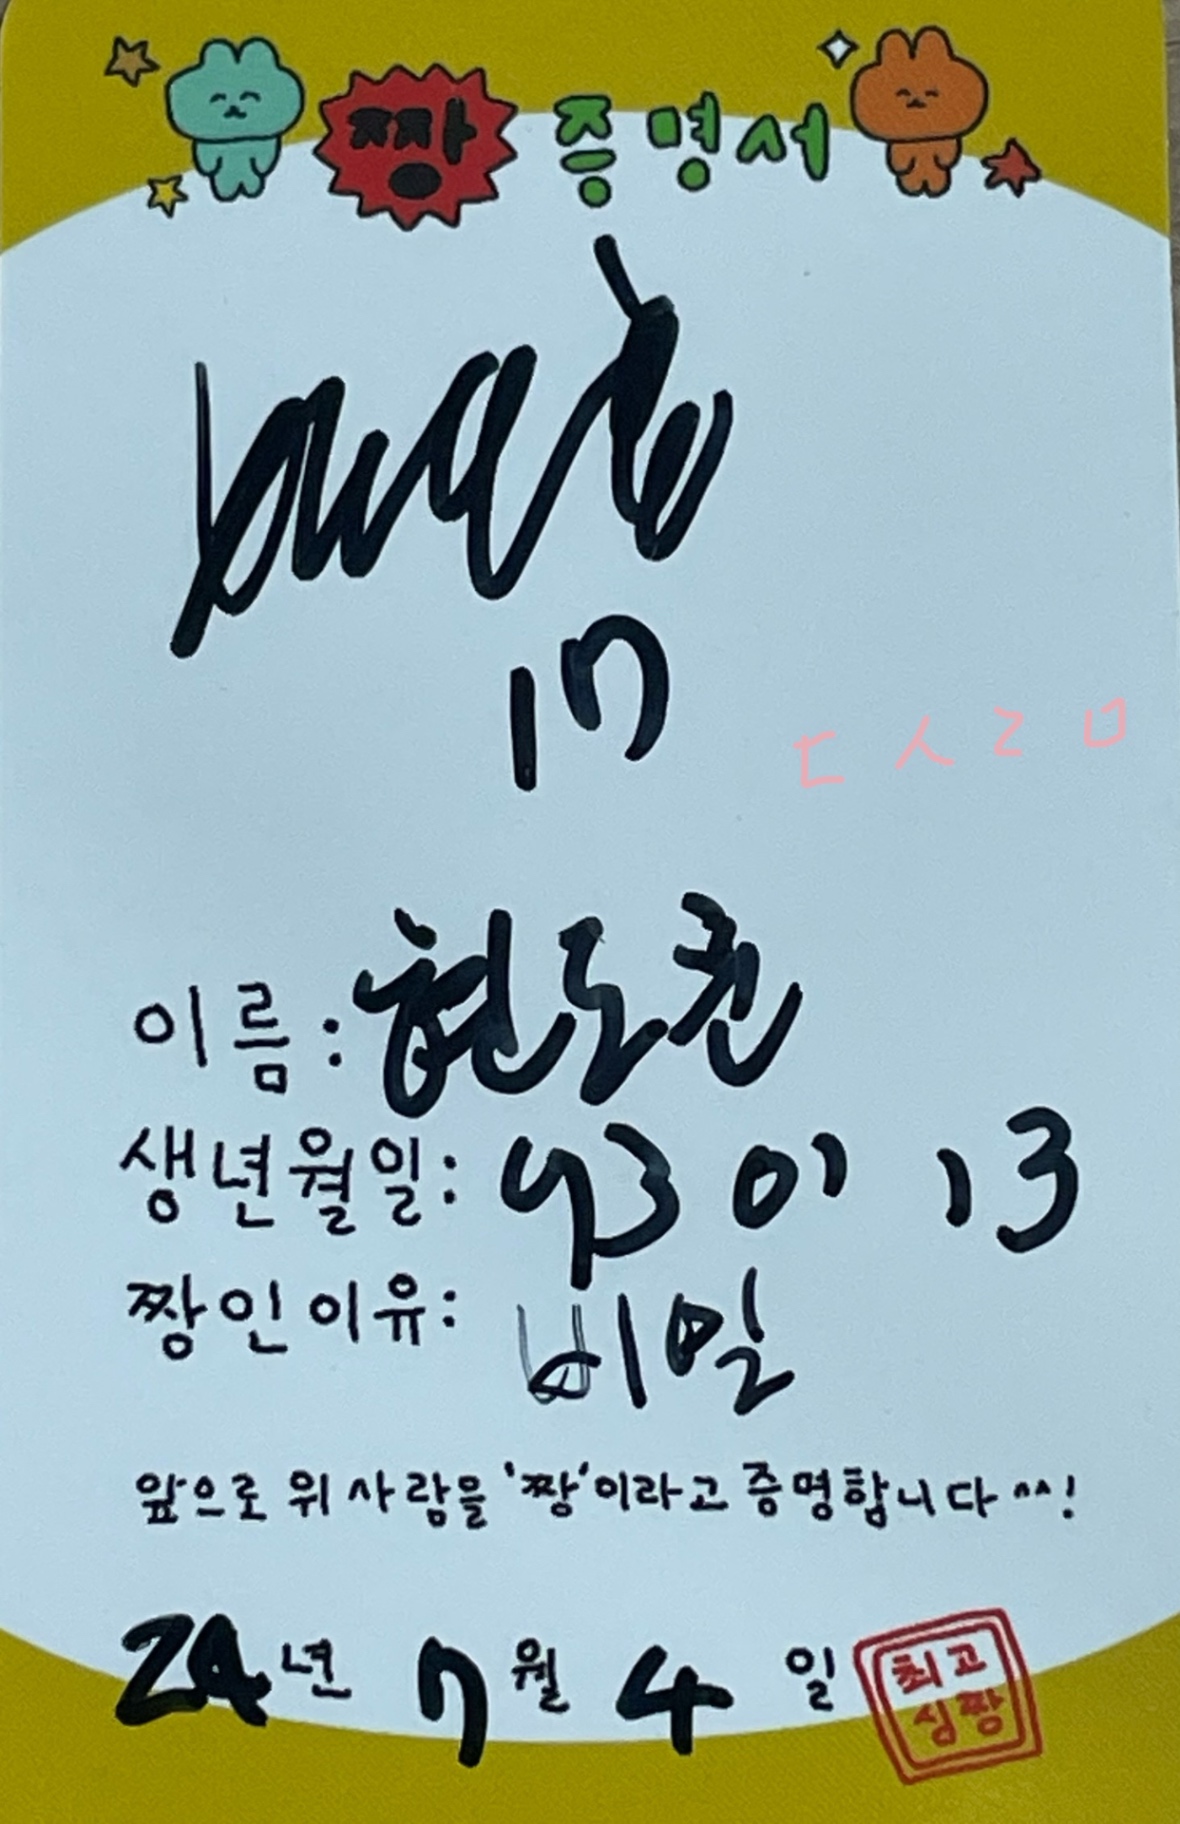 짱 증명서
17
ㄷㅅㄹㅁ
이름: 현도훈
생년월일: 93 01 13
짱인이유: 비밀
앞으로 위 사람을 '짱'이라고 증명합니다 ^^!
24년 7월 4일
최고
심짱